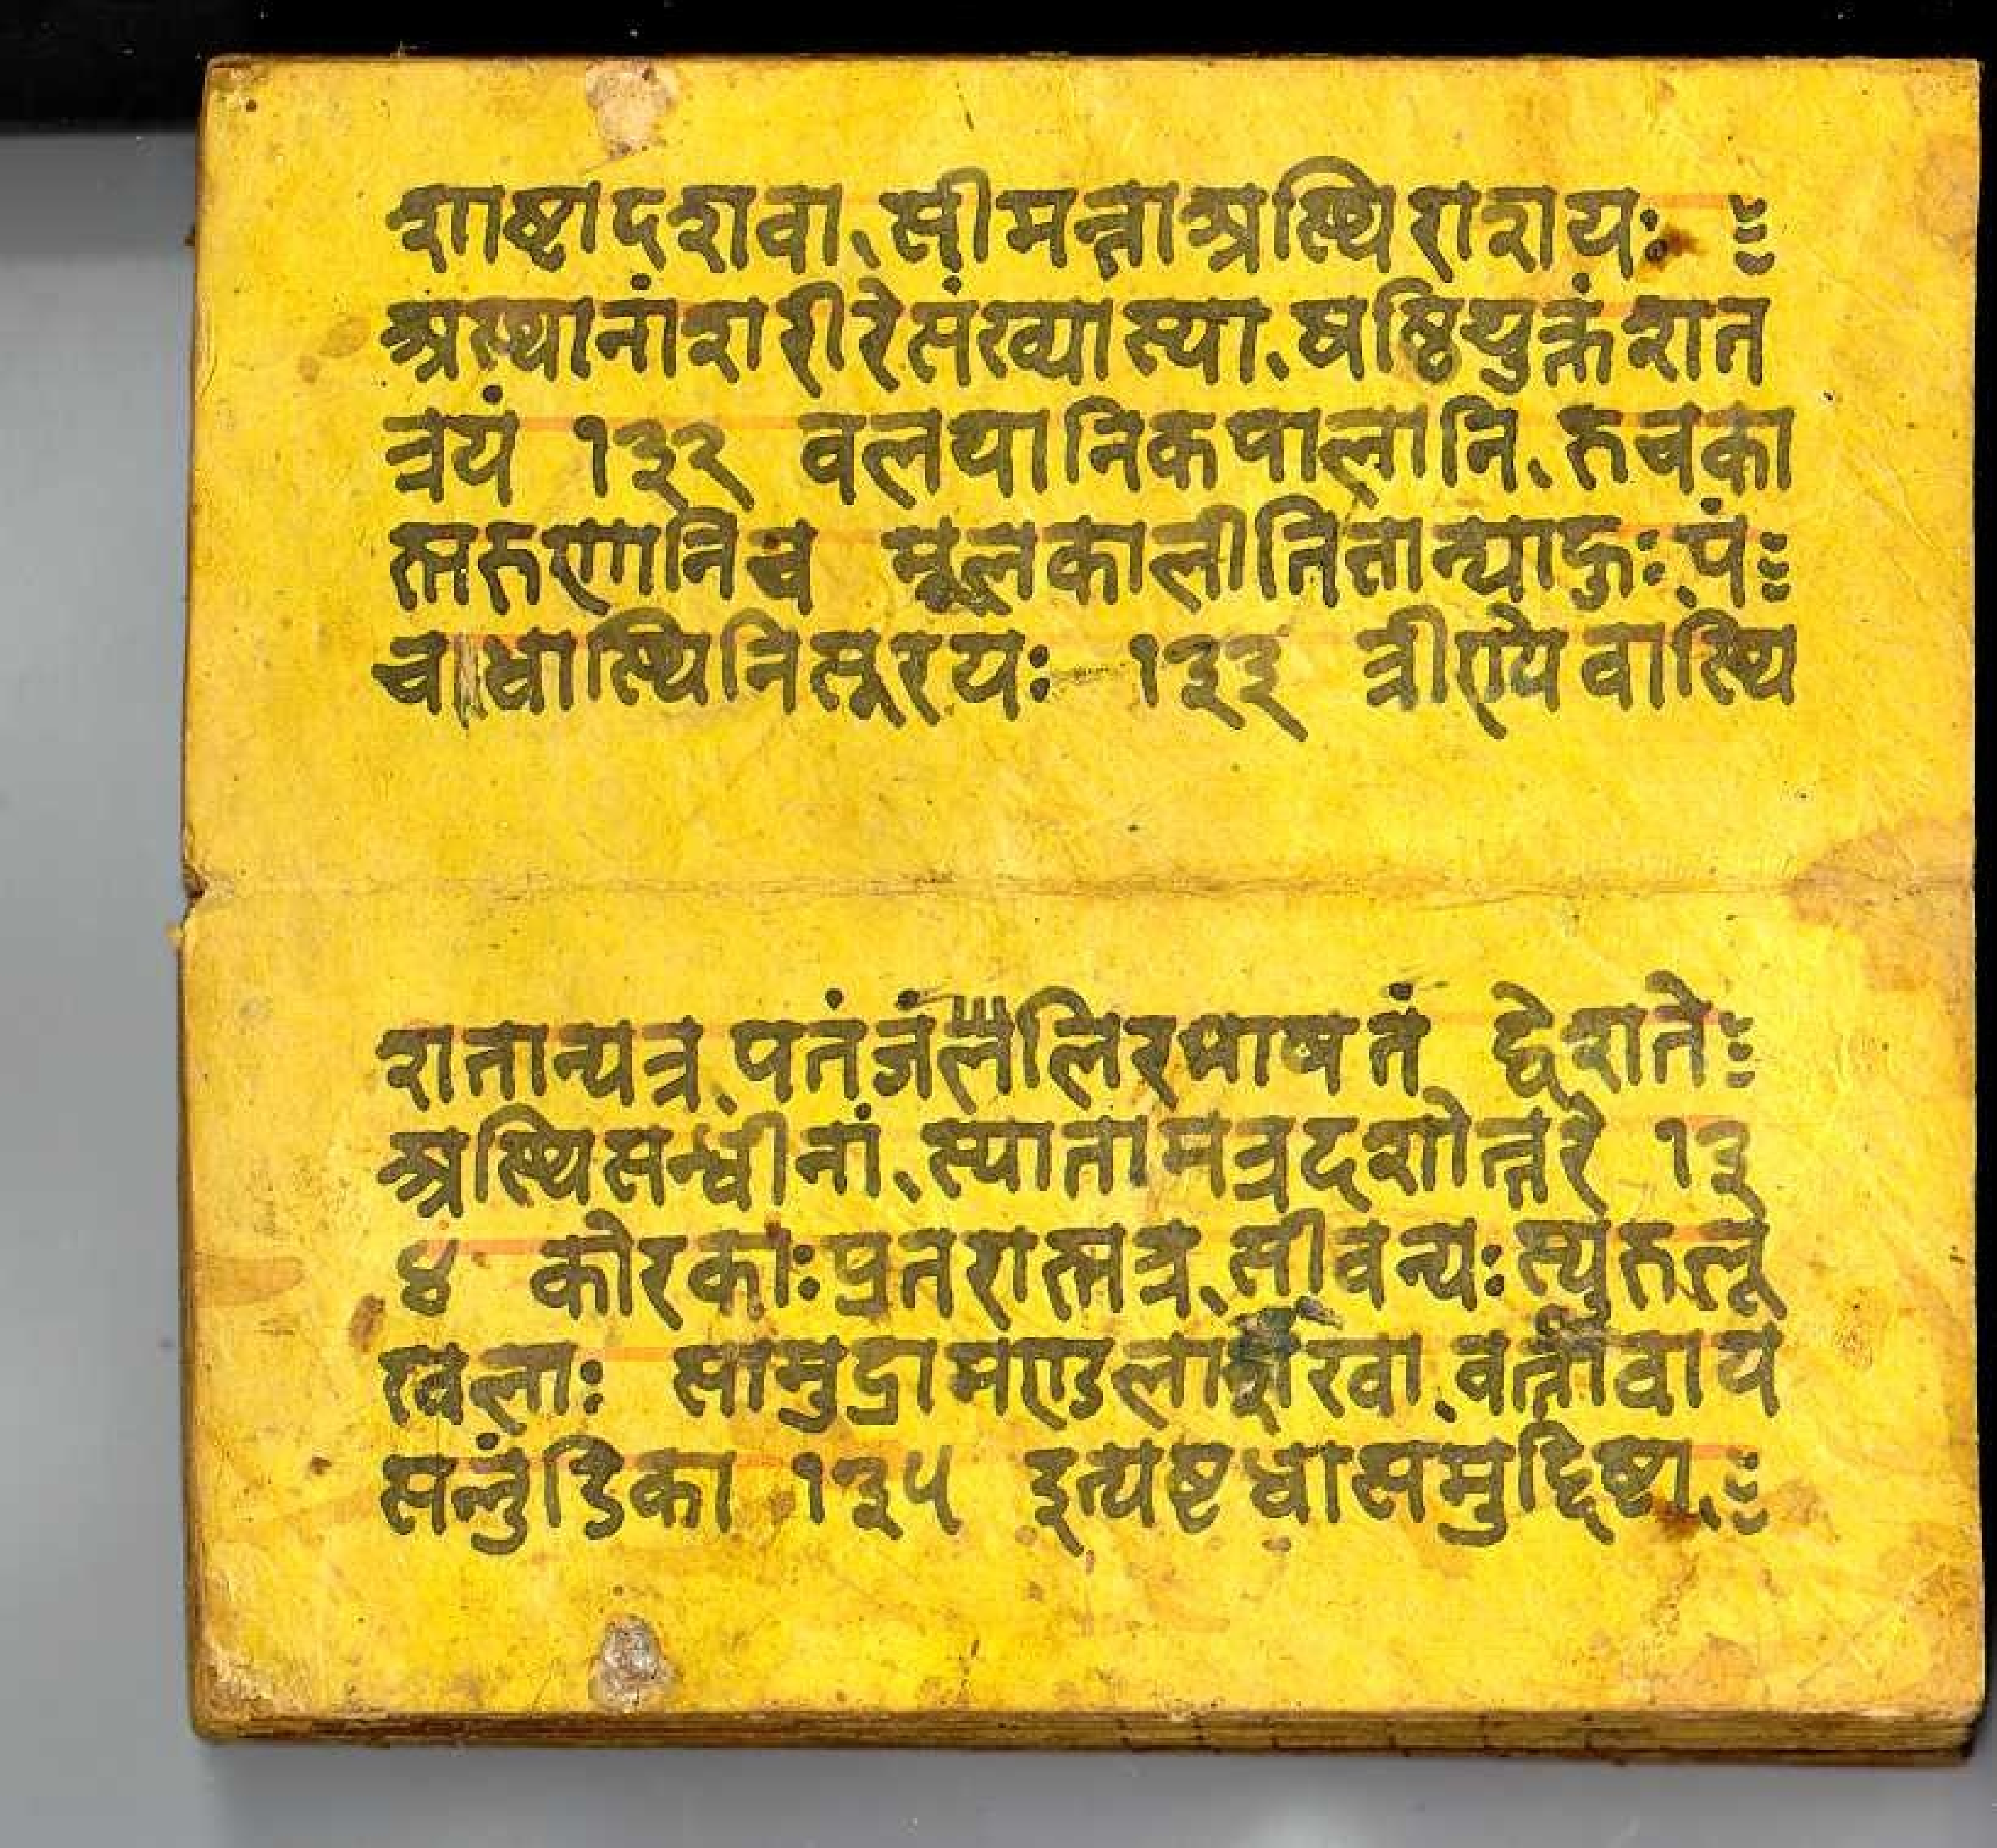 शाष्टादशवा, सीमन्ताअस्थिराशयः
अस्थानांशरीरेसंख्यास्या, षष्ठियुक्तंशत
त्रयं १३२ वलयानिकपालानि, रुचका
स्तरुणानिच मूलकालीतितान्याहुः पं
चधास्थिनिसूरयः १३३ त्रीण्येवास्थि
शतान्यत्र, पतंजंललिरभाषतं द्वेशते
अस्थिसन्धीनां, स्यातामत्रदशोत्तरे १३
४ कोरकाःप्रतरास्तत्र, सीवन्यःस्युरुलू
खलाः सामुद्रामण्डलाशंखा, वर्त्तावाय
सतुंडिका १३५ इत्यष्टधासमुद्दिष्टा,